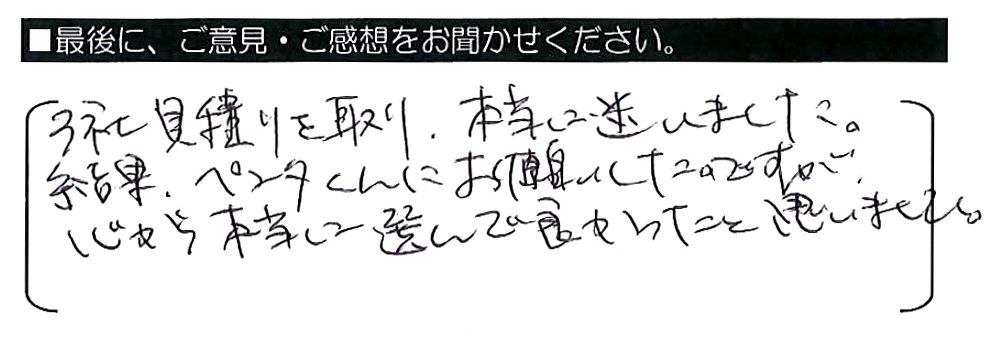 ■最後に、ご意見・ご感想をお聞かせください。
3社見積りを取り、本当に迷いました。
結果、ペンタくんにお願いしたのですが、
心から本当に選んで良かったと思いました。